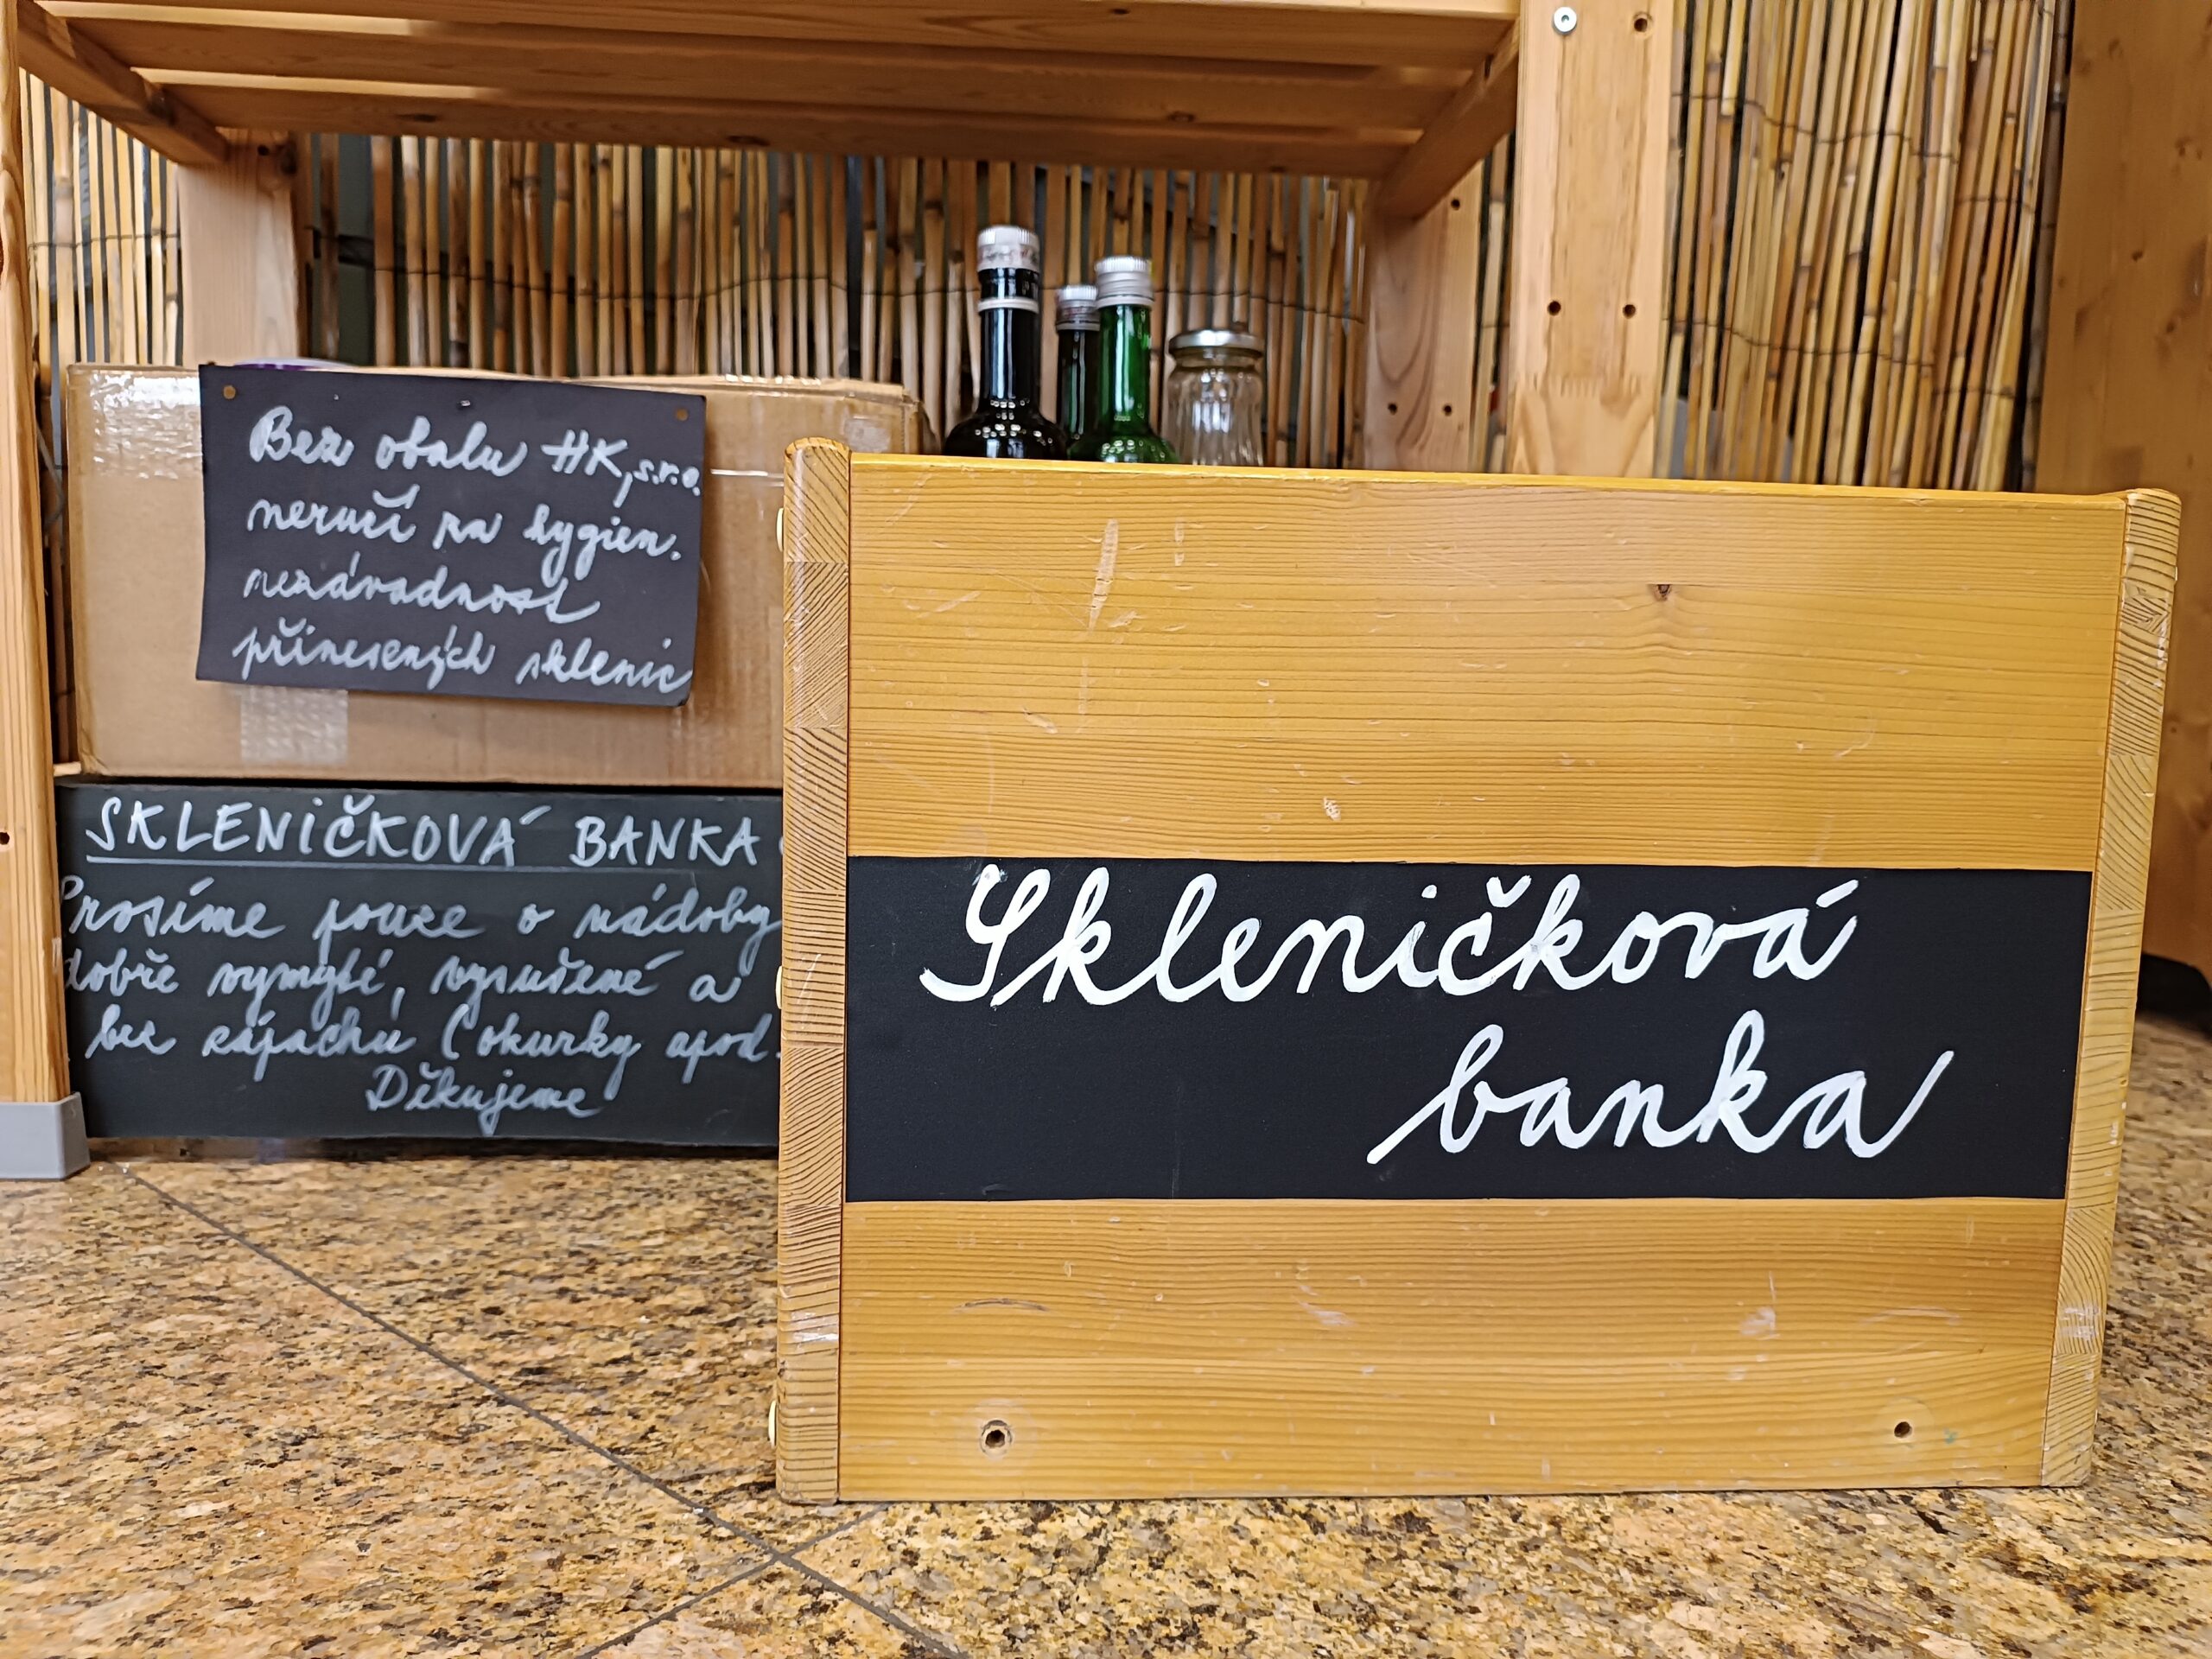 Bez obalu HK, s.r.o.
neručí za hygien.
nezávadnost
přinesených sklenic
SKLENiČKOVÁ BANKA
Prosíme pouze o nádoby
dobře vymyté, vysušené a
bez zápachu (okurky apod.
Děkujeme
Skleničková
banka